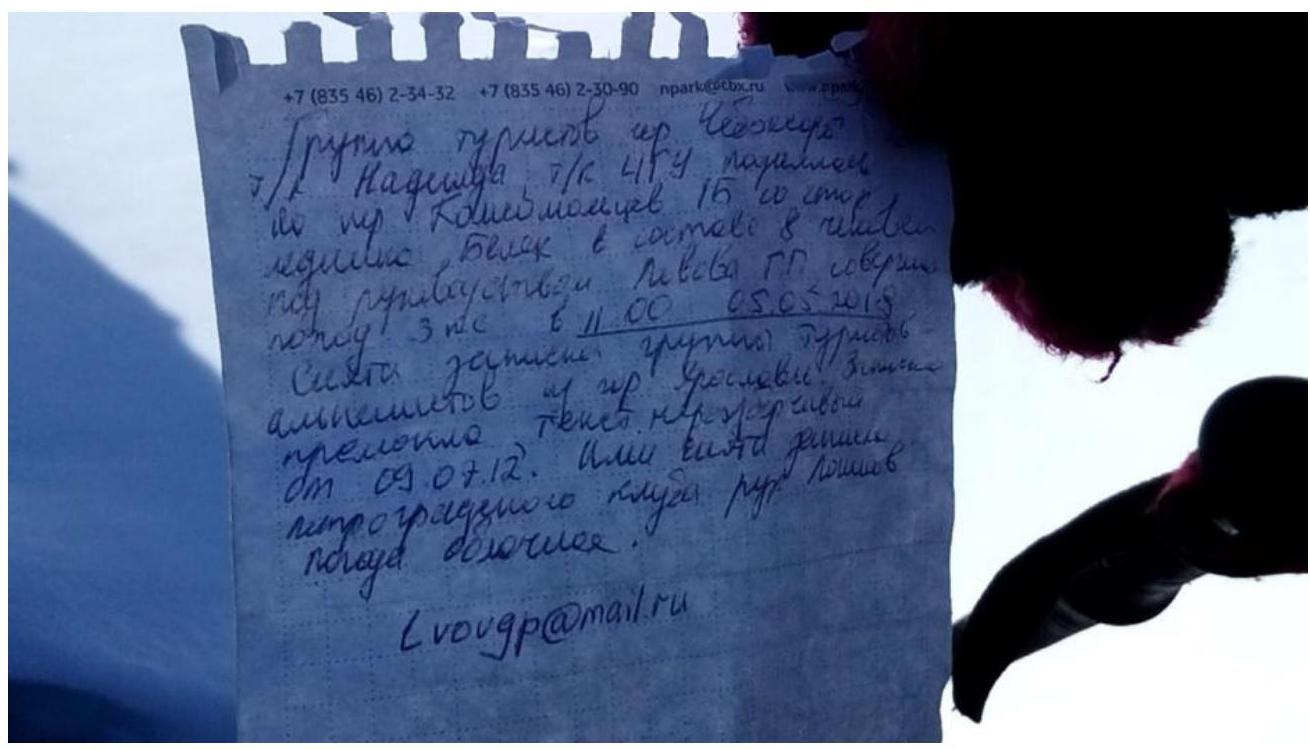 +7 (835 46) 2-34-32 +7 (835 46) 2-30-90 npark@cbx.ru www.npark
Группа туристов гор. Чебоксары
т/к Надежда, т/к ЧГУ поднялась
на пер Комсомольцев 1Б со стор
ледника Белек в составе 8 человек
под руководством Львова ГП соверш
поход 3 кс в 11 00 05.05 2018
Снята записка группы туристов
альпинистов из гор Ярославль. Записка
промокла текст неразборчивый
от 09.07.12. Или снята записка
петроградского клуба рук
Погода облачная.
Lvovgp@mail.ru